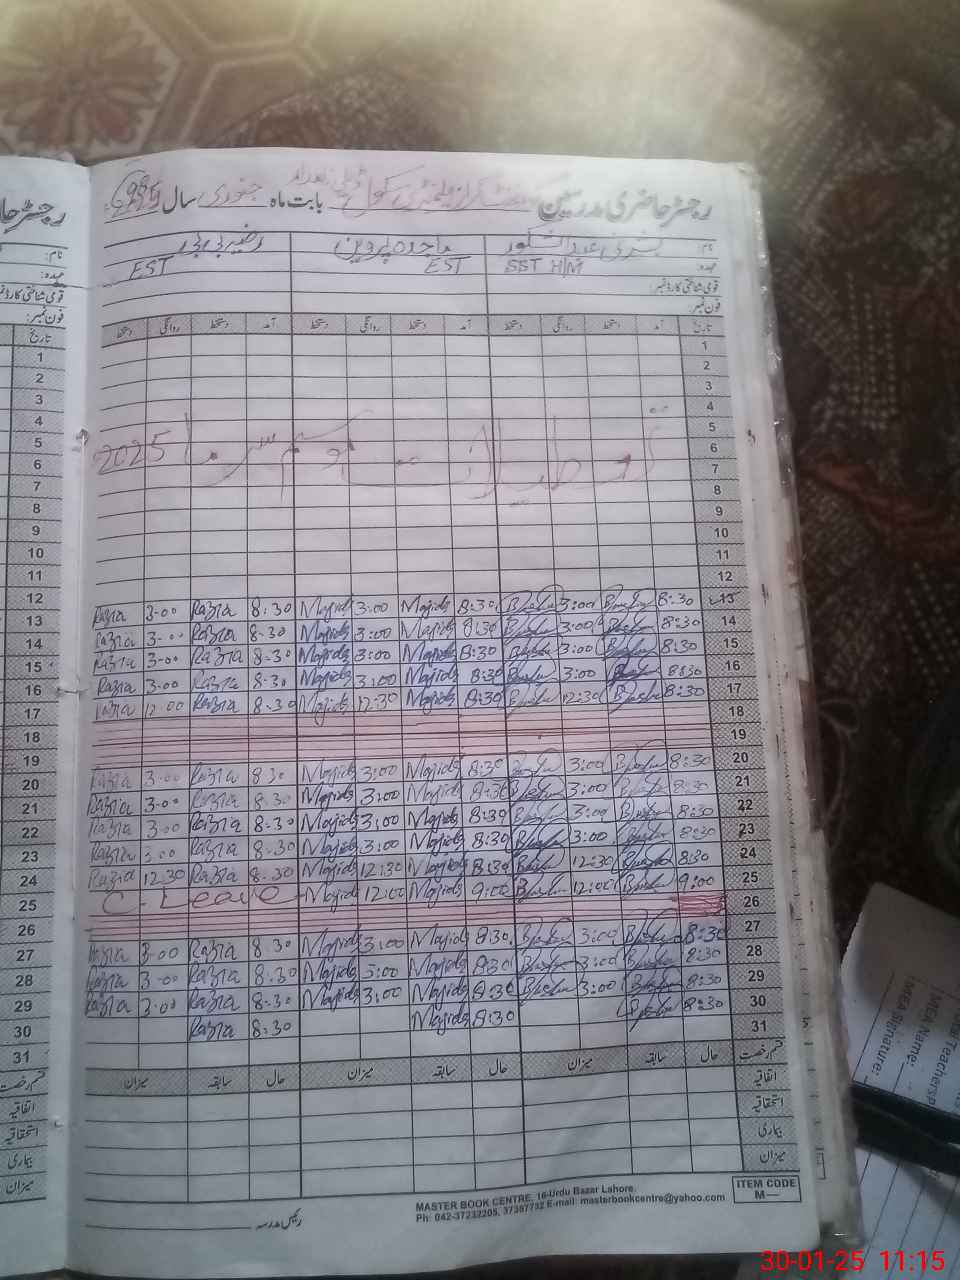 رجسٹر حاضری مدرسین گورنمنٹ گرلز ایلیمنٹری سکول بابت ماہ جنوری سال
نام: بشریٰ عبدالشکور ماجدہ پروین رضیہ بی بی
عہدہ: SST H/M EST EST
قومی شناختی کارڈ نمبر:
فون نمبر:
تاریخ آمد دستخط روانگی دستخط آمد دستخط روانگی دستخط آمد دستخط روانگی دستخط
1
2
3
4
5
6
7
تعطیلات موسم سرما 2025
8
9
10
11
12
Razia 3-00 Razia 8:30 Majida 3:00 Majida 8:30 Bushra 3:00 Bushra 8:30 13
Razia 3-00 Razia 8-30 Majida 3:00 Majida 8:30 Bushra 3:00 Bushra 8:30 14
Razia 3-00 Razia 8-30 Majida 3:00 Majida 8:30 Bushra 3:00 Bushra 8:30 15
Razia 3-00 Razia 8-30 Majida 3:00 Majida 8:30 Bushra 3:00 Bushra 8:30 16
Razia 12-00 Razia 8-30 Majida 12:30 Majida 8:30 Bushra 12:30 Bushra 8:30 17
18
19
Razia 3-00 Razia 8-30 Majida 3:00 Majida 8:30 Bushra 3:00 Bushra 8:30 20
Razia 3-00 Razia 8-30 Majida 3:00 Majida 8:30 Bushra 3:00 Bushra 8:30 21
Razia 3-00 Razia 8-30 Majida 3:00 Majida 8:30 Bushra 3:00 Bushra 8:30 22
Razia 3:00 Razia 8-30 Majida 3:00 Majida 8:30 Bushra 3:00 Bushra 8:30 23
Razia 12:30 Razia 8-30 Majida 12:30 Majida 8:30 Bushra 12:30 Bushra 8:30 24
C-Leave Majida 12:00 Majida 9:00 Bushra 12:00 Bushra 9:00 25
26
Razia 3-00 Razia 8-30 Majida 3:00 Majida 8:30 Bushra 3:00 Bushra 8:30 27
Razia 3-00 Razia 8-30 Majida 3:00 Majida 8:30 Bushra 3:00 Bushra 8:30 28
Razia 3-00 Razia 8-30 Majida 3:00 Majida 8:30 Bushra 3:00 Bushra 8:30 29
Razia 8-30 Majida 8:30 Bushra 8:30 30
31
قسم رخصت حال سابقہ میزان حال سابقہ میزان حال سابقہ میزان
اتفاقیہ
استحقاقیہ
بیماری
میزان
رئیس مدرسہ
MASTER BOOK CENTRE, 16-Urdu Bazar Lahore.
Ph: 042-37232205, 37357732 E-mail: masterbookcentre@yahoo.com
ITEM CODE
M—
رجسٹر حا
نام:
عہدہ:
قومی شناختی کارڈ نمبر:
فون نمبر:
تاریخ
1
2
3
4
5
6
7
8
9
10
11
12
13
14
15
16
17
18
19
20
21
22
23
24
25
26
27
28
29
30
31
قسم رخصت
اتفاقیہ
استحقاقیہ
بیماری
میزان
MEA Name:
MEA Signature:
30-01-25 11:15